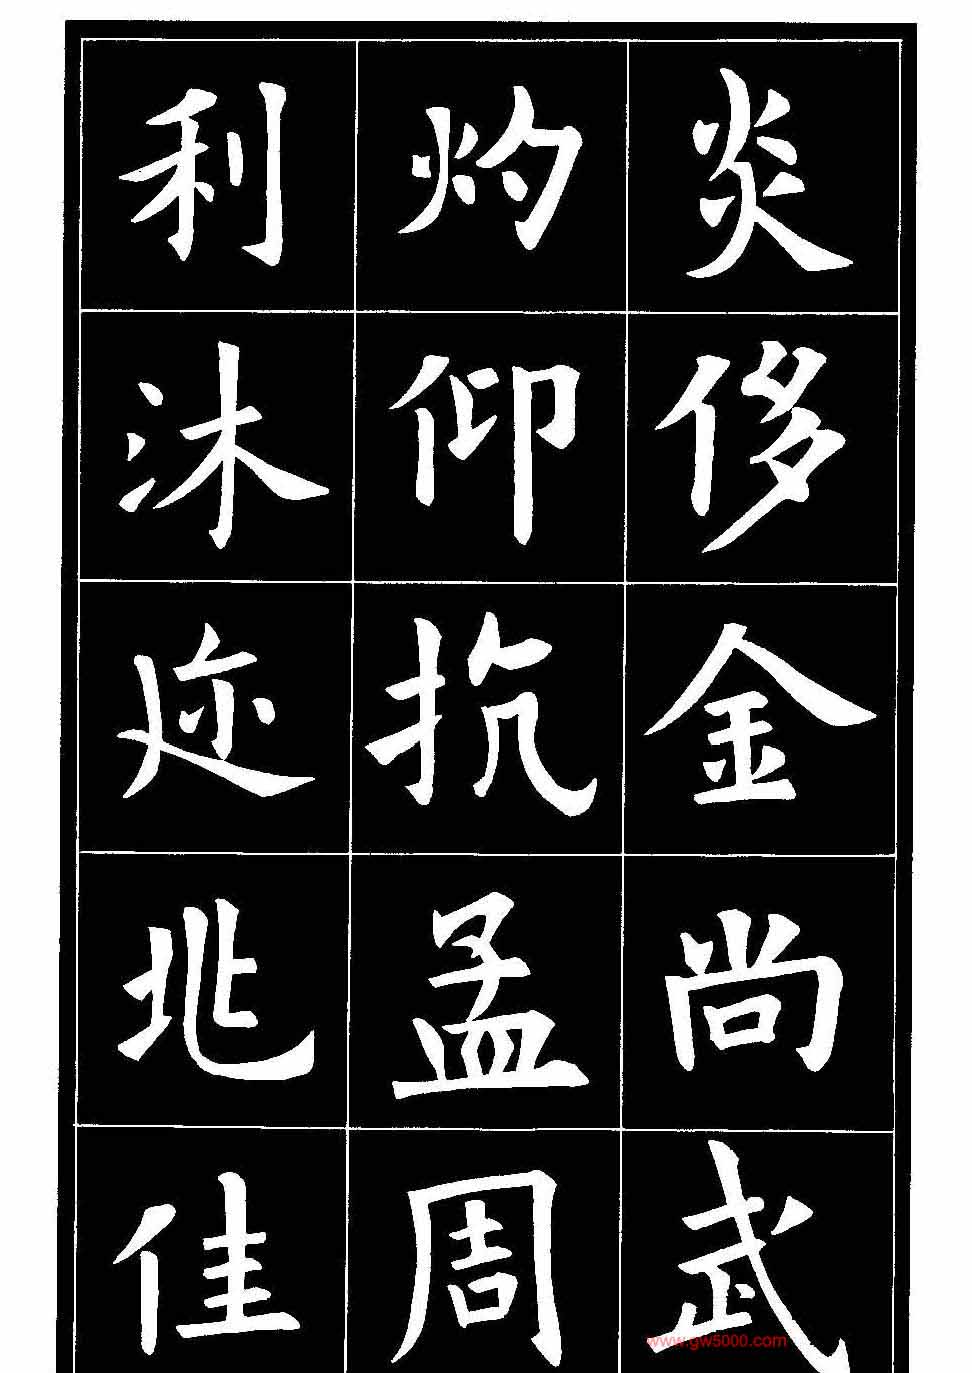 炎侈金尚武
灼仰抗孟周
利沐迹佳
www.gw5000.com